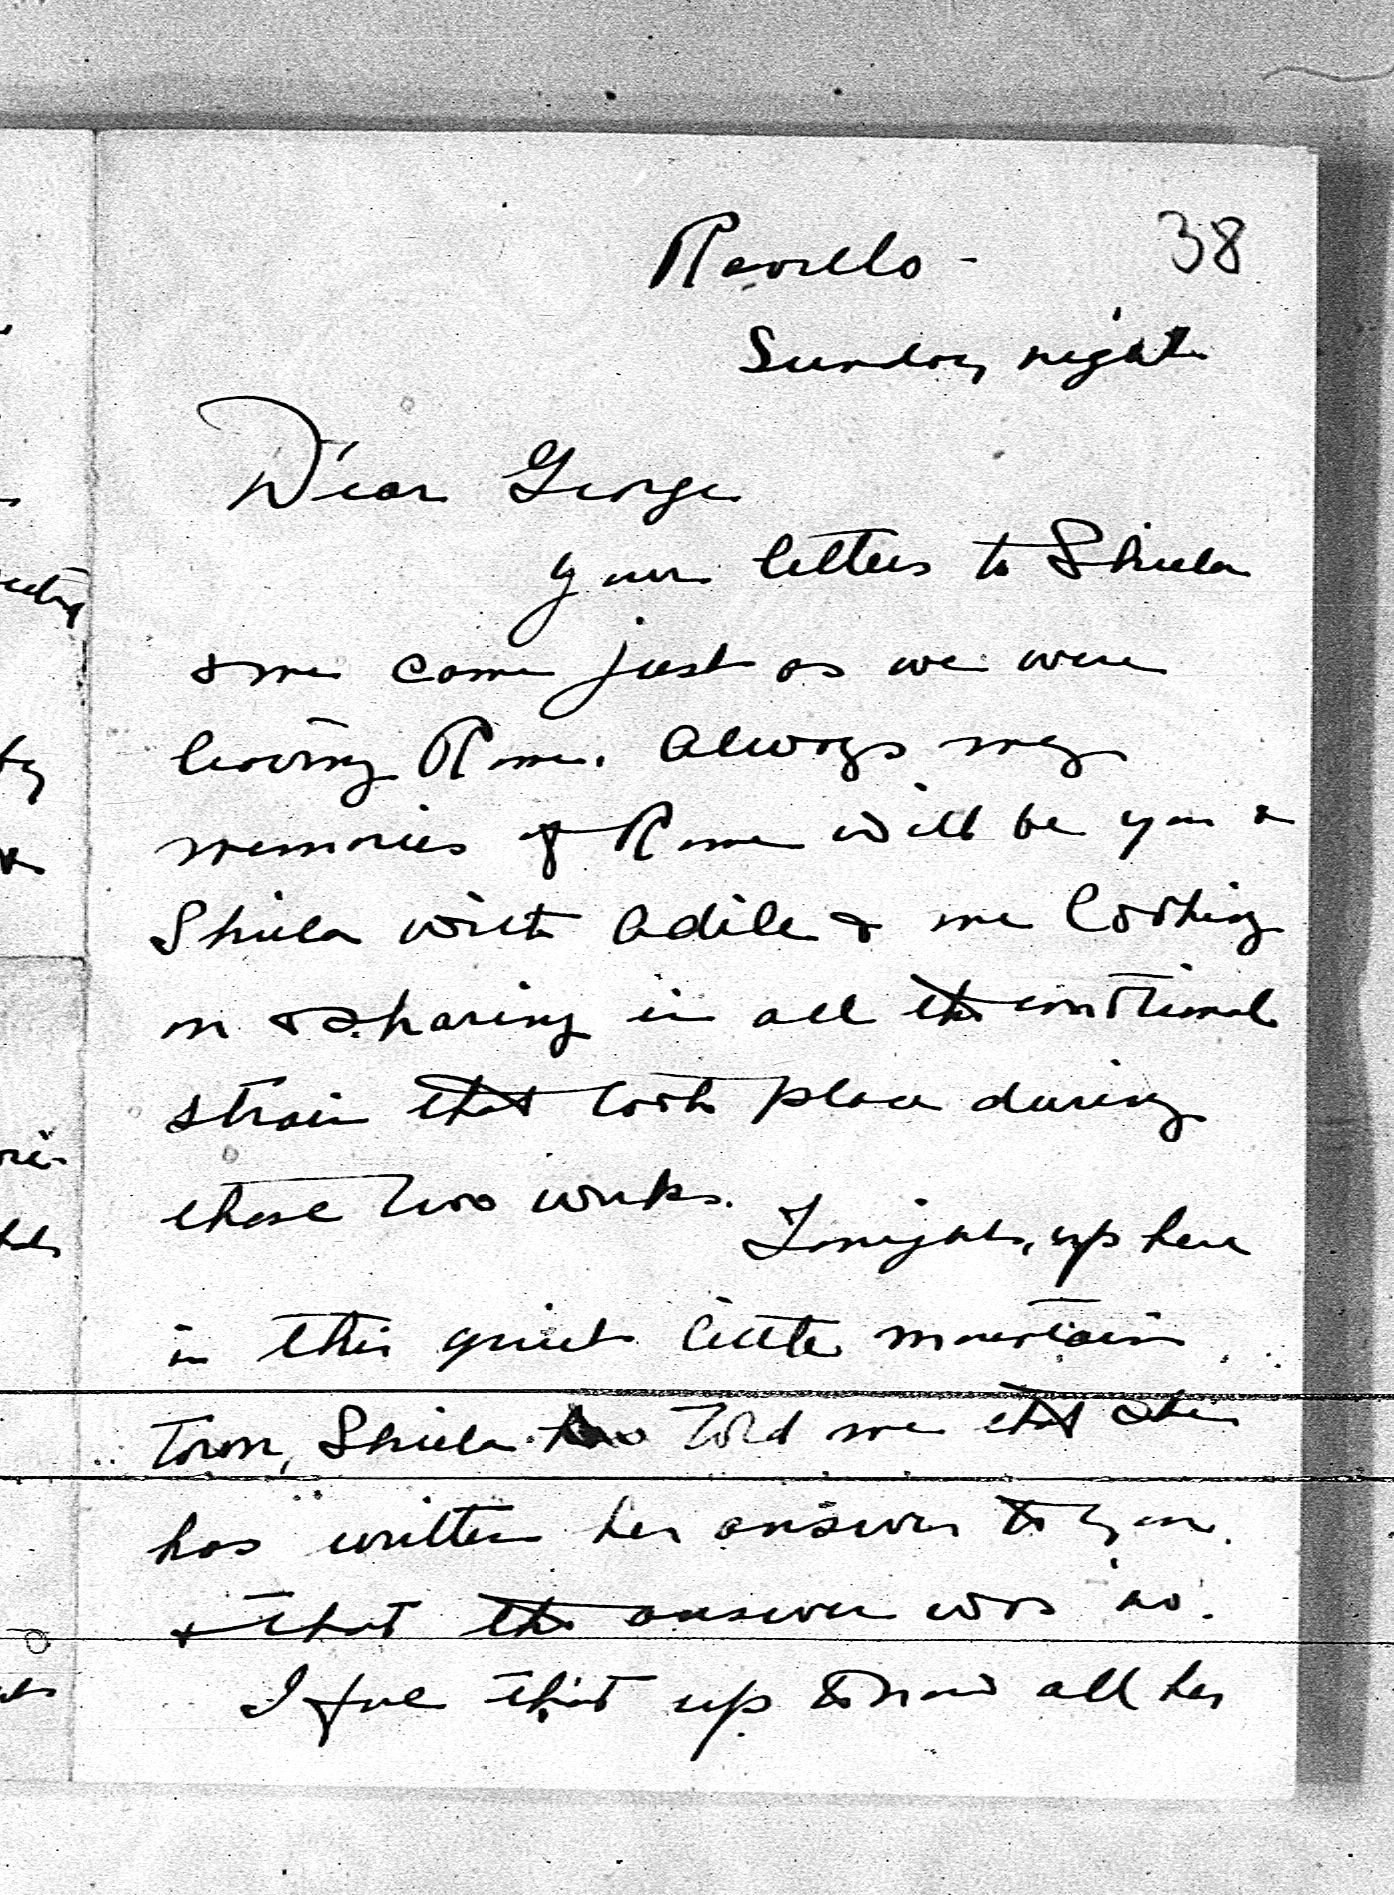 38
Ravello -
Sunday night
Dear George
your letters to Shiela
& me came just as we were
leaving Rome. Always my
memories of Rome will be you &
Shiela with Adile & me looking
on & sharing in all the emotional
strain that took place during
those two weeks.
Tonight, up here
in this quiet little mountain
town, Shiela told me that she
has written her answer to you.
& that the answer was 'no'.
I feel that up to now all her